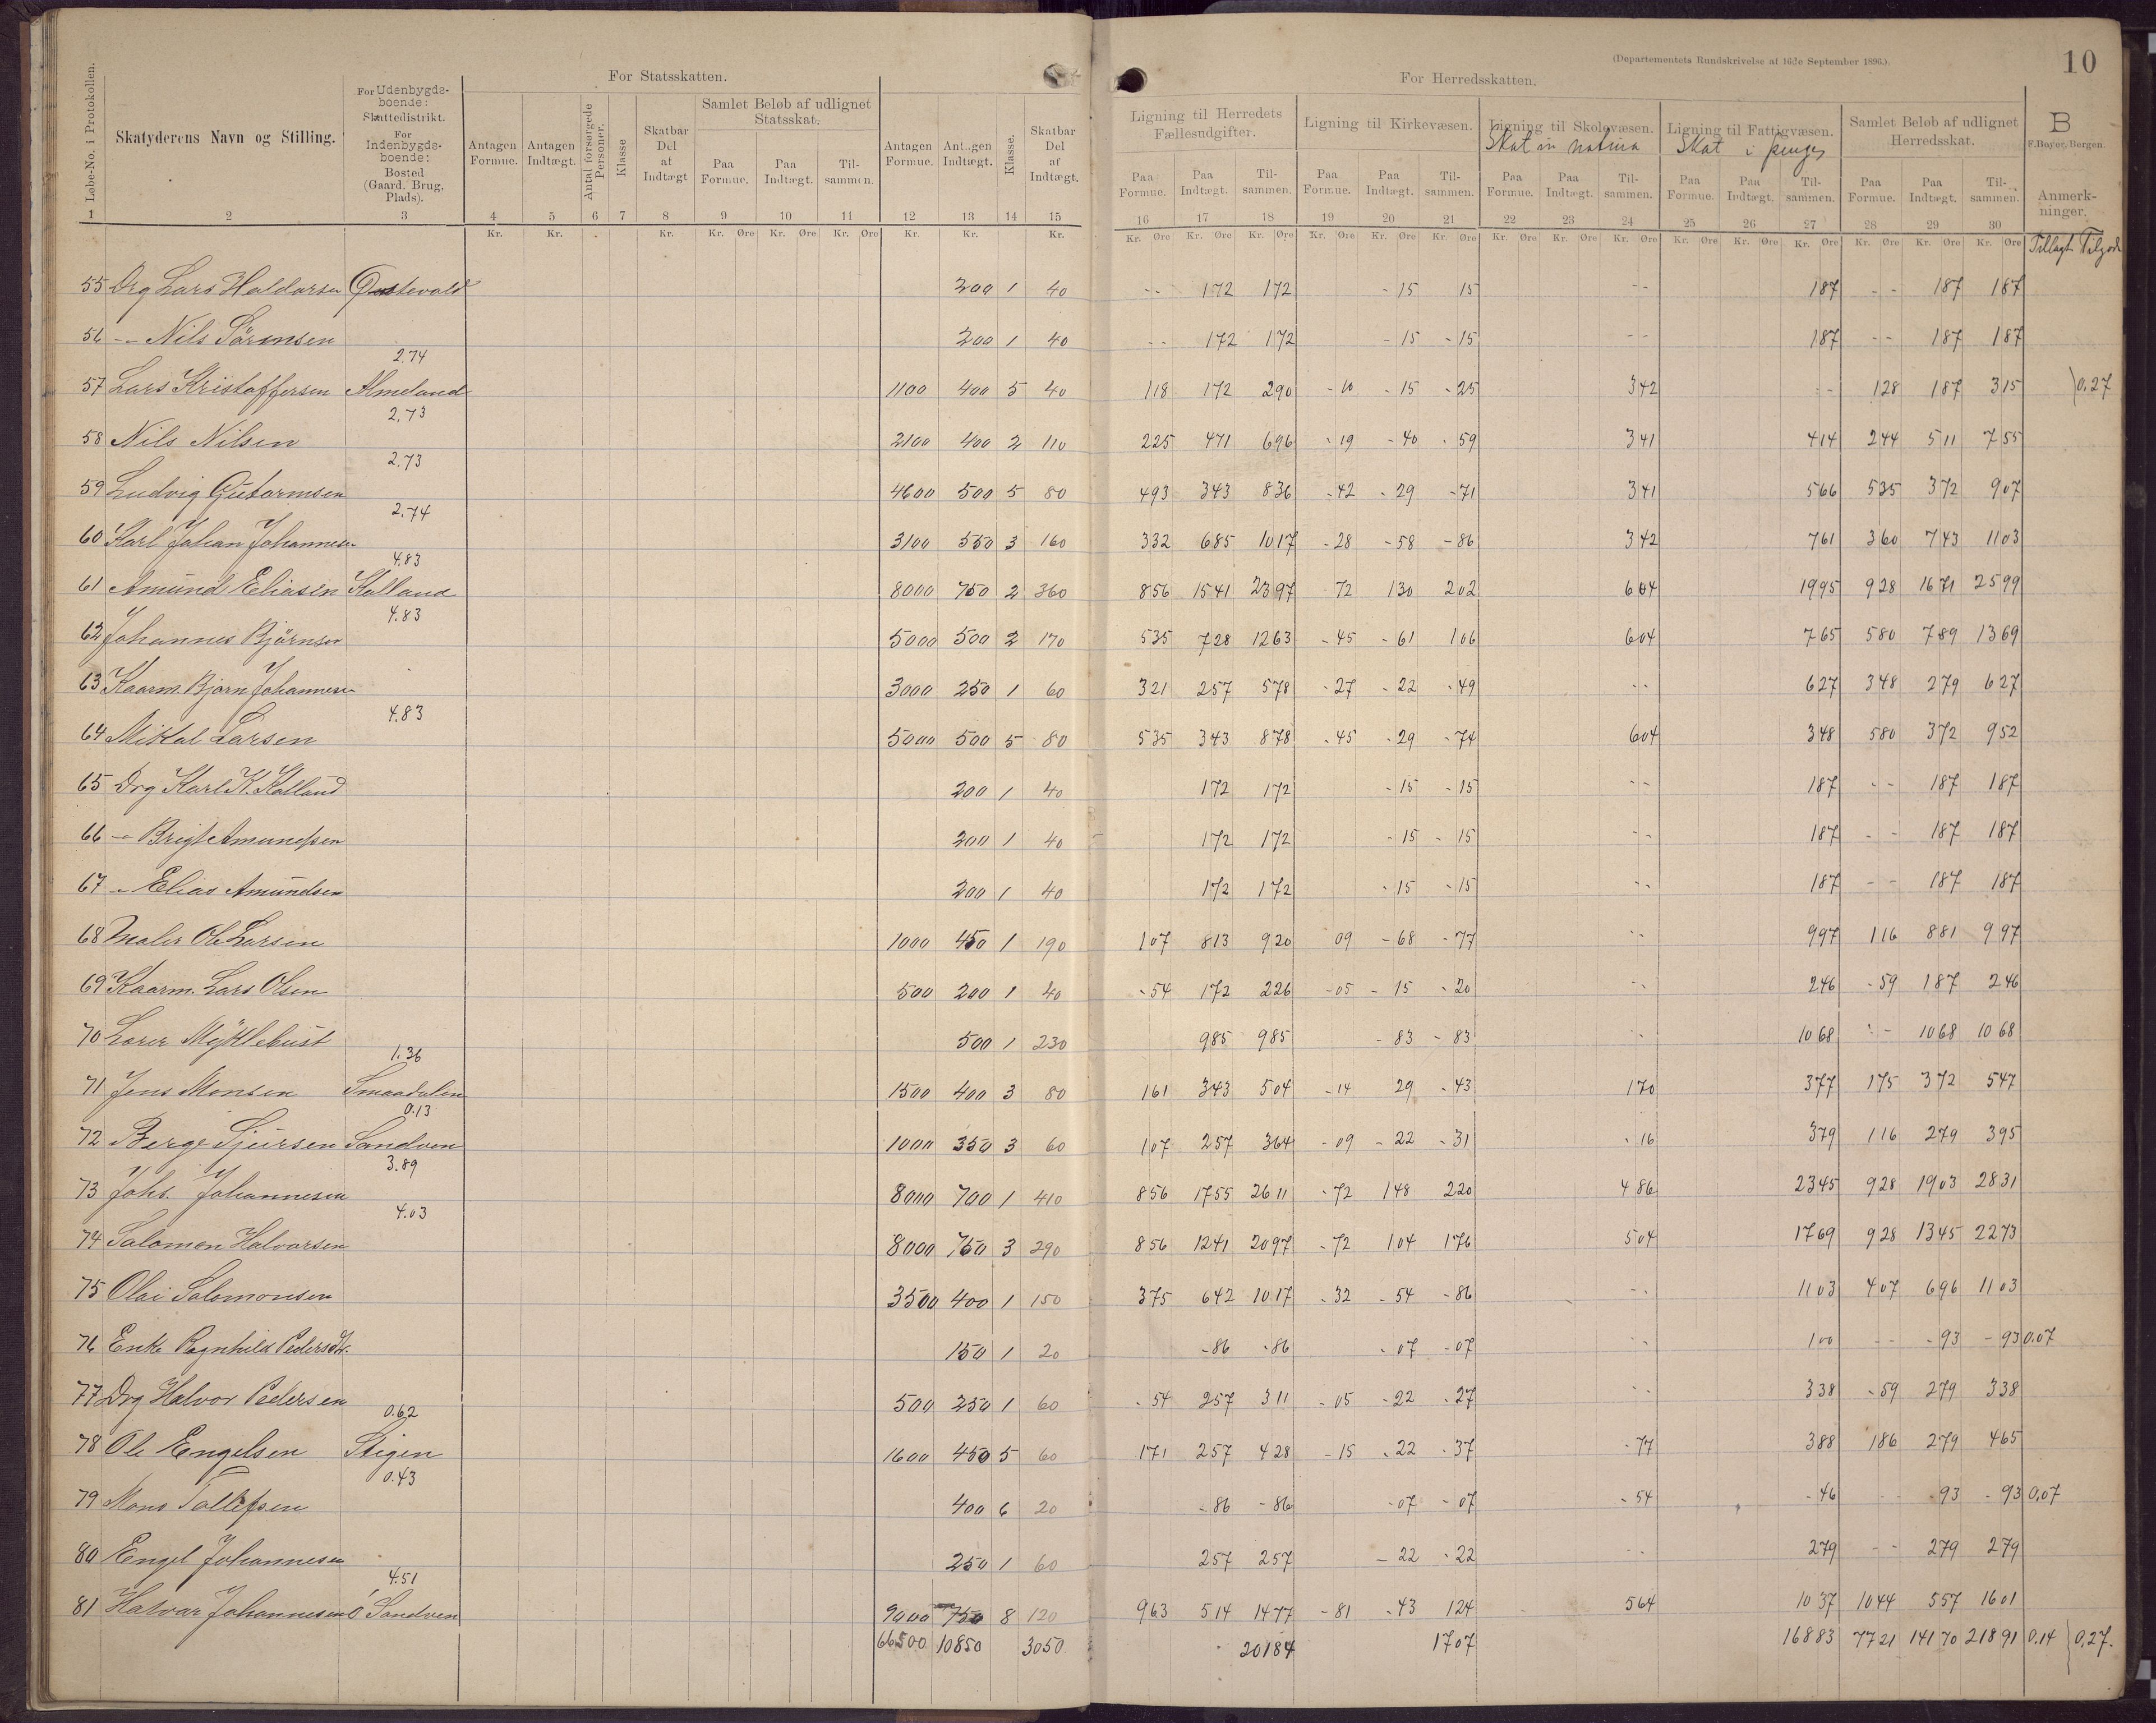 10
(Departementets Rundskrivelse af 16de September 1896.)
For Statsskatten.
For Herredsskatten.
Løbe-No. i Protokollen.
Skatyderens Navn og Stilling.
For Udenbygds-boende: Skattedistrikt. For Indenbygds-boende: Bosted (Gaard. Brug, Plads).
Antagen Formue. Antagen Indtægt. Antal forsørgede Personer. Klasse Skatbar Del af Indtægt
Samlet Beløb af udlignet Statsskat. Paa Formue. Paa Indtægt. Til-sammen.
Antagen Formue. Antagen Indtægt. Klasse. Skatbar Del af Indtægt.
Ligning til Herredets Fællesudgifter. Paa Formue. Paa Indtægt. Til-sammen.
Ligning til Kirkevæsen. Paa Formue. Paa Indtægt. Til-sammen.
Ligning til Skolevæsen. Skat in natura Paa Formue. Paa Indtægt. Til-sammen.
Ligning til Fattigvæsen. Skat i penger Paa Formue. Paa Indtægt. Til-sammen.
Samlet Beløb af udlignet Herredsskat. Paa Formue. Paa Indtægt. Til-sammen.
B
F. Beyer, Bergen.
Anmerk-ninger.
1 2 3 4 5 6 7 8 9 10 11 12 13 14 15 16 17 18 19 20 21 22 23 24 25 26 27 28 29 30
Kr. Kr. Kr. Kr. Øre Kr. Øre Kr. Øre Kr. Kr. Kr. Kr. Øre Kr. Øre Kr. Øre Kr. Øre Kr. Øre Kr. Øre Kr. Øre Kr. Øre Kr. Øre Kr. Øre Kr. Øre Kr. Øre Kr. Øre Kr. Øre Kr. Øre Tillagt Tilgode
55 Drg Lars Haldorsen 200 1 40 -- 172 172 - 15 15 -- 187 -- 187 187
56 -"- Nils Sörensen 200 1 40 -- 172 172 - 15 - 15 -- 187 -- 187 187
2.74
57 Lars Kristoffersen Almeland 1100 400 5 40 118 172 290 - 10 - 15 - 25 342 -- 128 187 315 0.27
2.73
58 Nils Nilsen 2100 400 2 110 225 471 696 - 19 - 40 - 59 341 414 244 511 755
2.73
59 Ludvig Gutormsen 4600 500 5 80 493 343 836 - 42 - 29 - 71 341 566 535 372 907
2.74
60 Karl Johan Johannesen 3100 550 3 160 332 685 1017 - 28 - 58 - 86 342 761 360 743 1103
4.83
61 Amund Eliasen Kalland 8000 750 2 360 856 1541 2397 72 130 202 604 1995 928 1671 2599
4.83
62 Johannes Björnsen 5000 500 2 170 535 728 1263 - 45 - 61 106 604 765 580 789 1369
63 Kaarm. Bjørn Johannesen 3000 250 1 60 321 257 578 - 27 - 22 - 49 -- 627 348 279 627
4.83
64 Mikal Larsen 5000 500 5 80 535 343 878 - 45 - 29 - 74 604 348 580 372 952
65 Drg Karl K. Kalland 200 1 40 172 172 - 15 - 15 -- 187 -- 187 187
66 -"- Brigt Amundsen 200 1 40 172 172 - 15 - 15 -- 187 -- 187 187
67 -"- Elias Amundsen 200 1 40 172 172 - 15 - 15 -- 187 -- 187 187
68 Maler Ole Larsen 1000 450 1 190 107 813 920 09 - 68 - 77 -- 997 116 881 997
69 Kaarm. Lars Olsen 500 200 1 40 - 54 172 226 - 05 - 15 - 20 -- 246 - 59 187 246
70 Lærer Myklebust 500 1 230 985 985 - 83 - 83 -- 1068 -- 1068 1068
1.36
71 Jens Monsen Smaadalen 1500 400 3 80 161 343 504 - 14 29 - 43 170 377 175 372 547
0.13
72 Berge Sjursen Sandven 1000 350 3 60 107 257 364 - 09 - 22 - 31 - 16 379 116 279 395
3.89
73 Johs. Johannesen 8000 700 1 410 856 1755 2611 - 72 148 220 486 2345 928 1903 2831
4.03
74 Salomon Halvorsen 8000 750 3 290 856 1241 2097 - 72 104 176 504 1769 928 1345 2273
75 Olai Salomonsen 3500 400 1 150 375 642 1017 - 32 - 54 - 86 -- 1103 407 696 1103
76 Enke Ragnhild Pedersdtr. 150 1 20 - 86 - 86 - 07 - 07 -- 100 -- - 93 - 93 0.07
77 Drg Halvor Pedersen 500 250 1 60 - 54 257 311 - 05 - 22 - 27 -- 338 - 59 279 338
0.62
78 Ole Engelsen Stigen 1600 450 5 60 171 257 428 - 15 - 22 - 37 - 77 388 186 279 465
0.43
79 Mons Tollefsen 400 6 20 - 86 - 86 - 07 - 07 - 54 - 46 -- - 93 - 93 0,07
80 Engel Johannesen 250 1 60 257 257 - 22 - 22 -- 279 -- 279 279
4.51
81 Halvor Johannesen Ö Sandven 9000 750 8 120 963 514 1477 - 81 - 43 124 564 1037 1044 557 1601
66500 10850 3050 20184 1707 16883 7721 14170 21891 0.14 0,27.